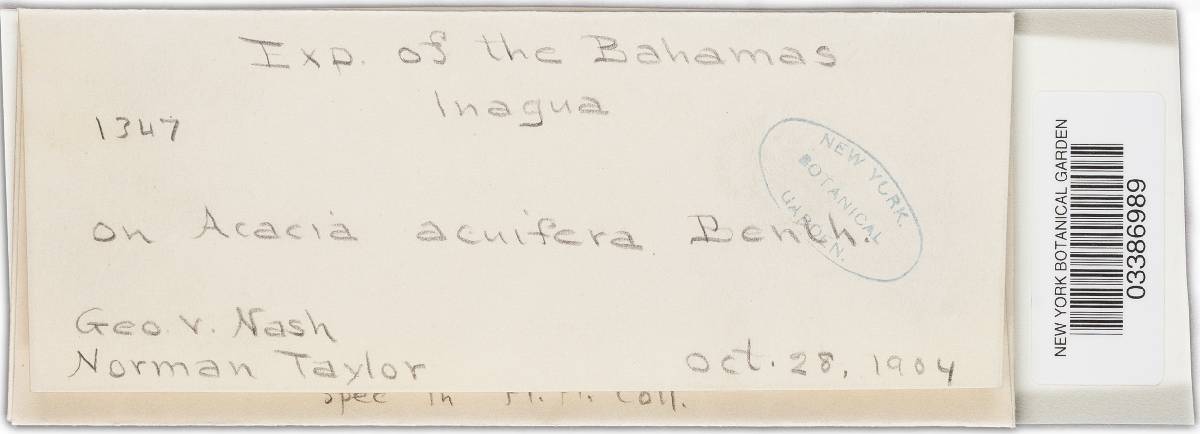 Exp. of the Bahamas
Inagua
1347
NEW YORK
BOTANICAL
GARDEN.
on Acacia acuifera Benth.
Geo. V. Nash
Norman Taylor
Oct. 28, 1904
Spec in
Coll.
NEW YORK BOTANICAL GARDEN
03386989